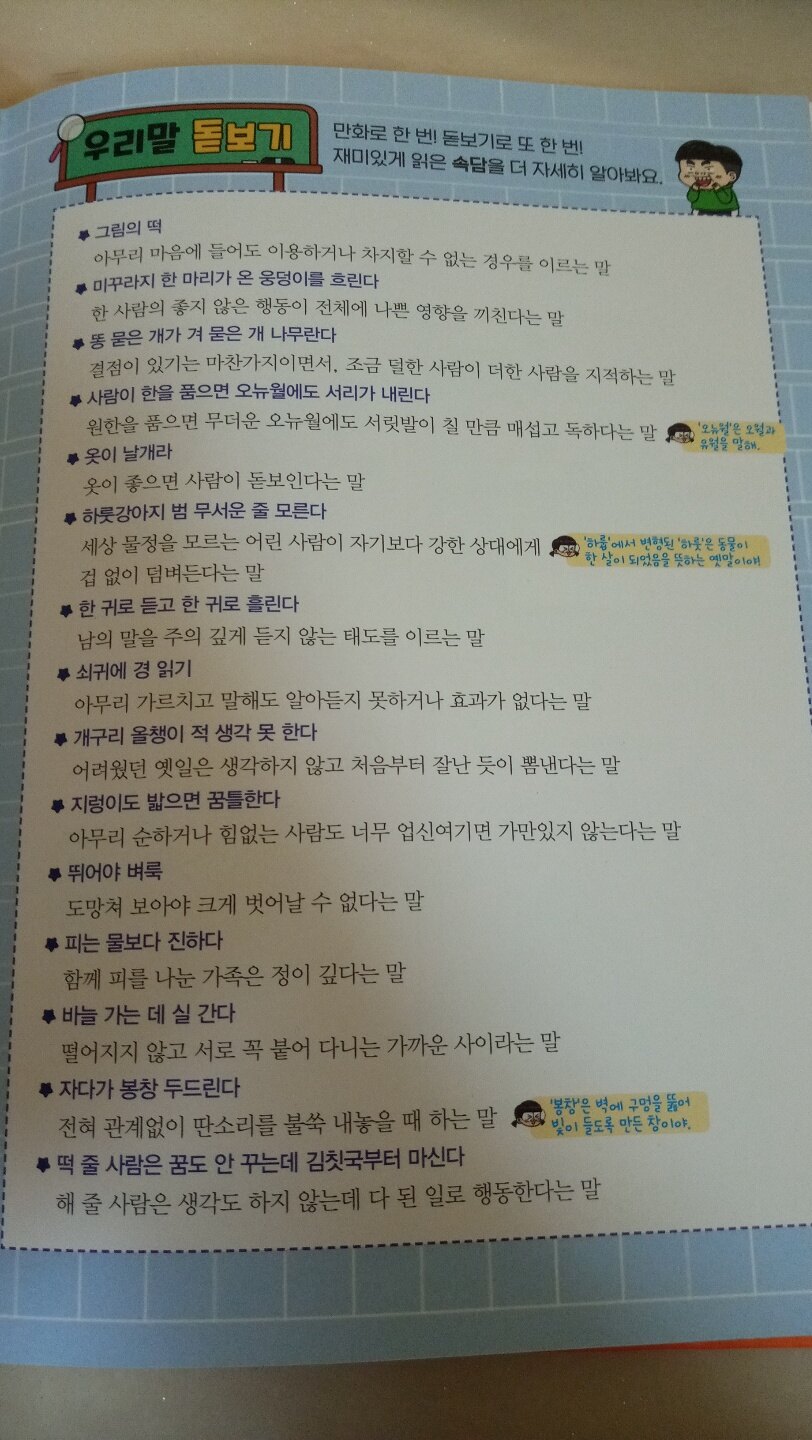 우리말 돋보기
만화로 한 번! 돋보기로 또 한 번!
재미있게 읽은 속담을 더 자세히 알아봐요.
그림의 떡
아무리 마음에 들어도 이용하거나 차지할 수 없는 경우를 이르는 말
미꾸라지 한 마리가 온 웅덩이를 흐린다
한 사람의 좋지 않은 행동이 전체에 나쁜 영향을 끼친다는 말
똥 묻은 개가 겨 묻은 개 나무란다
결점이 있기는 마찬가지이면서, 조금 덜한 사람이 더한 사람을 지적하는 말
사람이 한을 품으면 오뉴월에도 서리가 내린다
원한을 품으면 무더운 오뉴월에도 서릿발이 칠 만큼 매섭고 독하다는 말
'오뉴월'은 오월과
유월을 말해.
옷이 날개라
옷이 좋으면 사람이 돋보인다는 말
하룻강아지 범 무서운 줄 모른다
세상 물정을 모르는 어린 사람이 자기보다 강한 상대에게
겁 없이 덤벼든다는 말
'하릅'에서 변형된 '하룻'은 동물이
한 살이 되었음을 뜻하는 옛말이야!
한 귀로 듣고 한 귀로 흘린다
남의 말을 주의 깊게 듣지 않는 태도를 이르는 말
쇠귀에 경 읽기
아무리 가르치고 말해도 알아듣지 못하거나 효과가 없다는 말
개구리 올챙이 적 생각 못 한다
어려웠던 옛일은 생각하지 않고 처음부터 잘난 듯이 뽐낸다는 말
지렁이도 밟으면 꿈틀한다
아무리 순하거나 힘없는 사람도 너무 업신여기면 가만있지 않는다는 말
뛰어야 벼룩
도망쳐 보아야 크게 벗어날 수 없다는 말
피는 물보다 진하다
함께 피를 나눈 가족은 정이 깊다는 말
바늘 가는 데 실 간다
떨어지지 않고 서로 꼭 붙어 다니는 가까운 사이라는 말
자다가 봉창 두드린다
전혀 관계없이 딴소리를 불쑥 내놓을 때 하는 말
'봉창'은 벽에 구멍을 뚫어
빛이 들도록 만든 창이야.
떡 줄 사람은 꿈도 안 꾸는데 김칫국부터 마신다
해 줄 사람은 생각도 하지 않는데 다 된 일로 행동한다는 말